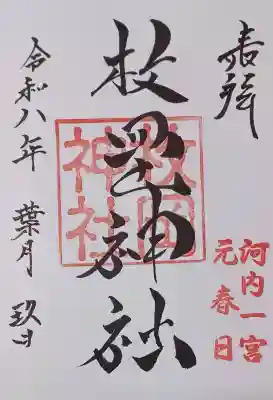 奉拝
河内一宮
元春日
枚岡神社
枚岡
神社
令和八年 葉月 玖日